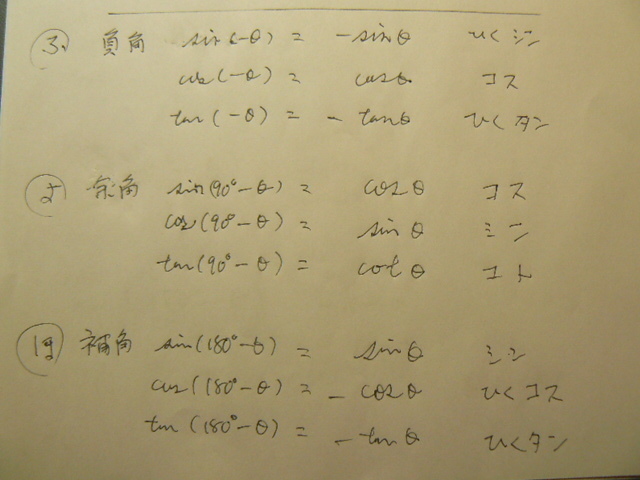 ふ 負角 sin(-θ) = -sinθ ひくシン
cos(-θ) = cosθ コス
tan(-θ) = -tanθ ひくタン
よ 余角 sin(90°-θ) = cosθ コス
cos(90°-θ) = sinθ シン
tan(90°-θ) = cotθ コト
ほ 補角 sin(180°-θ) = sinθ シン
cos(180°-θ) = -cosθ ひくコス
tan(180°-θ) = -tanθ ひくタン